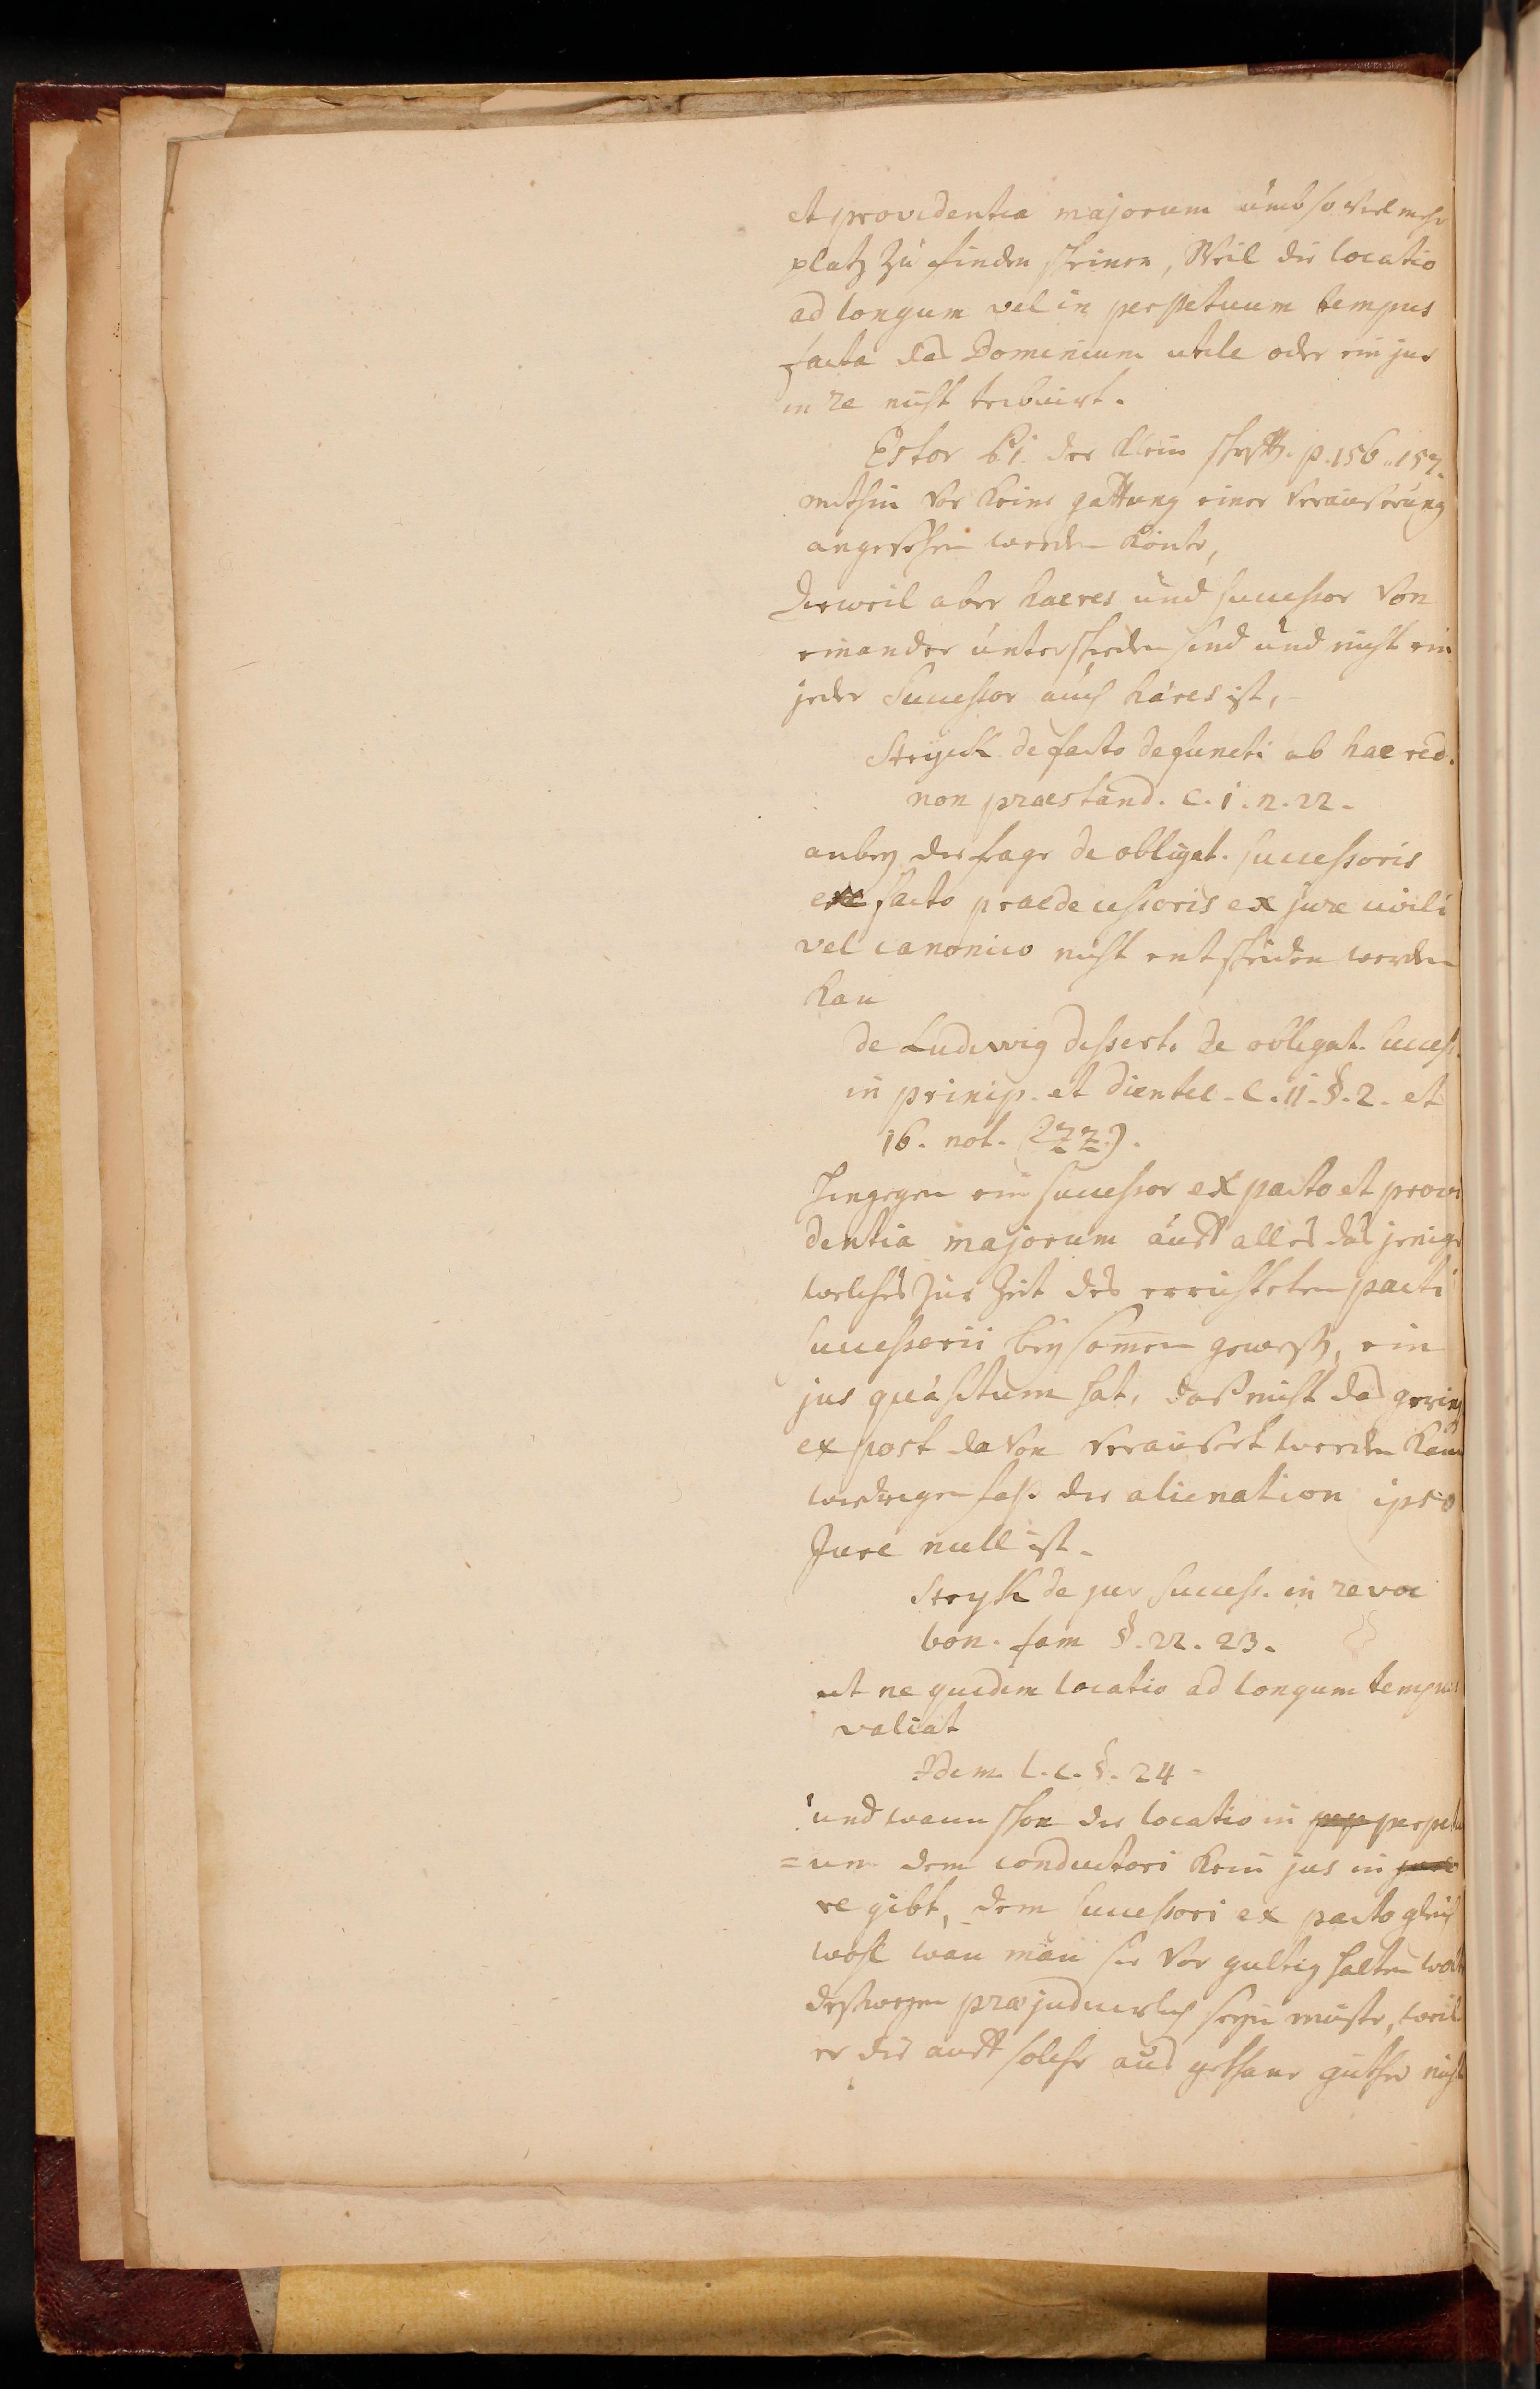 et providentia majorum umb so viel mehr
platz zu finden scheinen, Weil die locatio
ad longum vel in perpetuum tempus
facta das Dominium utile oder ein jus
in re nicht tribuirt.
Estor der Klein schrift. p. 156. 157.
mithin vor keine gattung einer veräusserung
angesehen werden könte,
Dieweil aber haeres und successor von
einander unterschieden sind und nicht ein
jeder Successor auch häres ist,
Stryck de facto defuncti ab haered.
non praestand. c. 1. n. 22.
anbey die frage de obligat. successoris
ex facto praedecessoris ex jure civili
vel canonico nicht entschieden werden
kan
de Ludewig dissert. de obligat. success.
in princip. et clientel. c. II. §. 2. et
16. not. (zzz).
Hingegen ein successor ex pacto et provi
dentia majorum auff alles das jenige
welches zur Zeit des errichteten pacti
successorii beysamen gewest, ein
jus quäsitum hat, dass nicht das gering
ex post davon veräussert werden kan
wiedrigen fals die alienation ipso
Jure null ist.
Stryk de jur success. in revoc
bon. fam §. 22. 23.
ut ne quidem locatio ad longum tempus
valiat
Idem l. c. §. 24
und wann schon die locatio in perpetu
=um dem conductori kein jus in
re gibt, dem successori ex pacto gleich
wohl wan man sie vor gultig halten wolt
desswegen praejudicirlich seyn müste, weil
er die auff solche aus gethane güther nicht